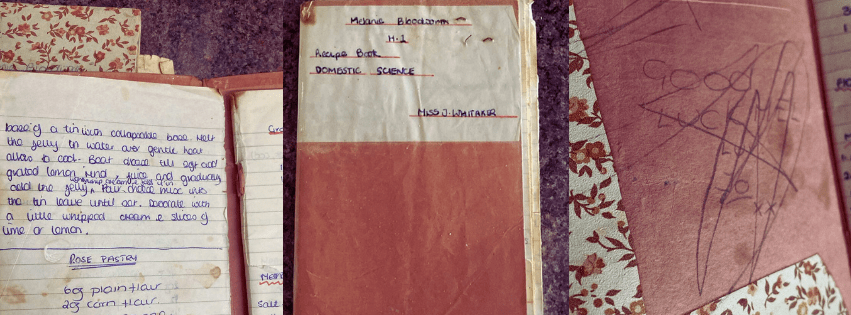 base of a tin with collapsable base. Melt
the jelly in water over gentle heat
allow to cool. Beat cheese till soft add
grated lemon rind, juice and gradually
add the jelly,
cream & fold it in
Pour cheese mix into
the tin leave until set. Decorate with
a little whipped cream & slices of
lime or lemon.
ROSE PASTRY
6oz plain flour
2oz corn flour
Melanie
H.1
Recipe Book
DOMESTIC SCIENCE
MISS J. WHITAKER
GOOD
LUCK MEL
xx